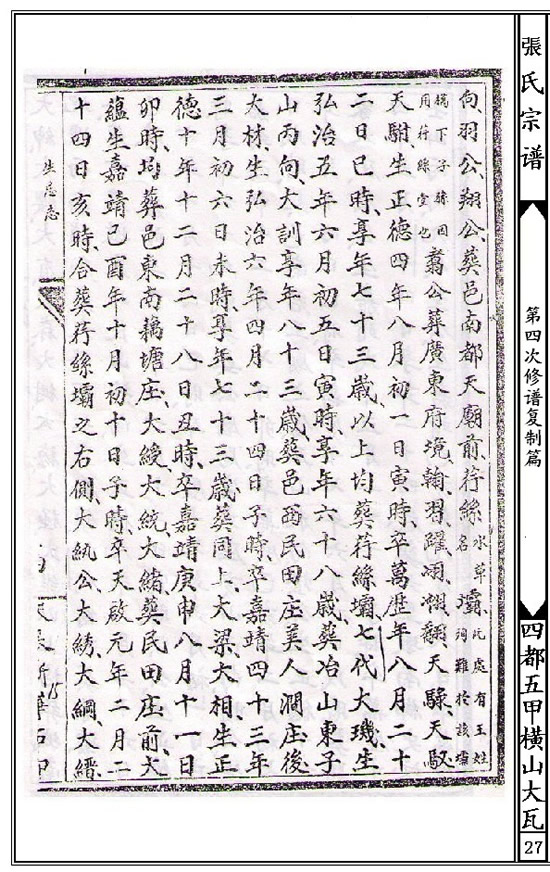 張氏宗谱
第四次修谱复制篇
四都五甲橫山大瓦
27
向羽公翔公葵邑南都天廟前荇絲水草名壩此處有王姓
坍下子孫因
用荇絲堂也翥公葬廣東府境翰習躍翊栩翻天騄天馭
天駙生正德四年八月初一日寅時卒萬歷年八月二十
二日巳時享年七十三歲以上均葵荇絲壩七代大璣生
弘治五年六月初五日寅時享年六十八歲葵冶山東子
山丙向大訓享年八十三歲葵邑西民田庄美人澗庄後
大材生弘治六年四月二十四日子時卒嘉靖四十三年
三月初六日未時享年七十三歲葵同上大梁大相生正
德十年十二月二十八日丑時卒嘉靖庚申八月十一日
卯時均葬邑東南藕塘庄大綬大統大緒葵民田庄前大
蘊生嘉靖己酉年十月初十日子時卒天啟元年二月二
十四日亥時合葵荇絲壩之右側大紈公大綉大綱大縉
生忌志